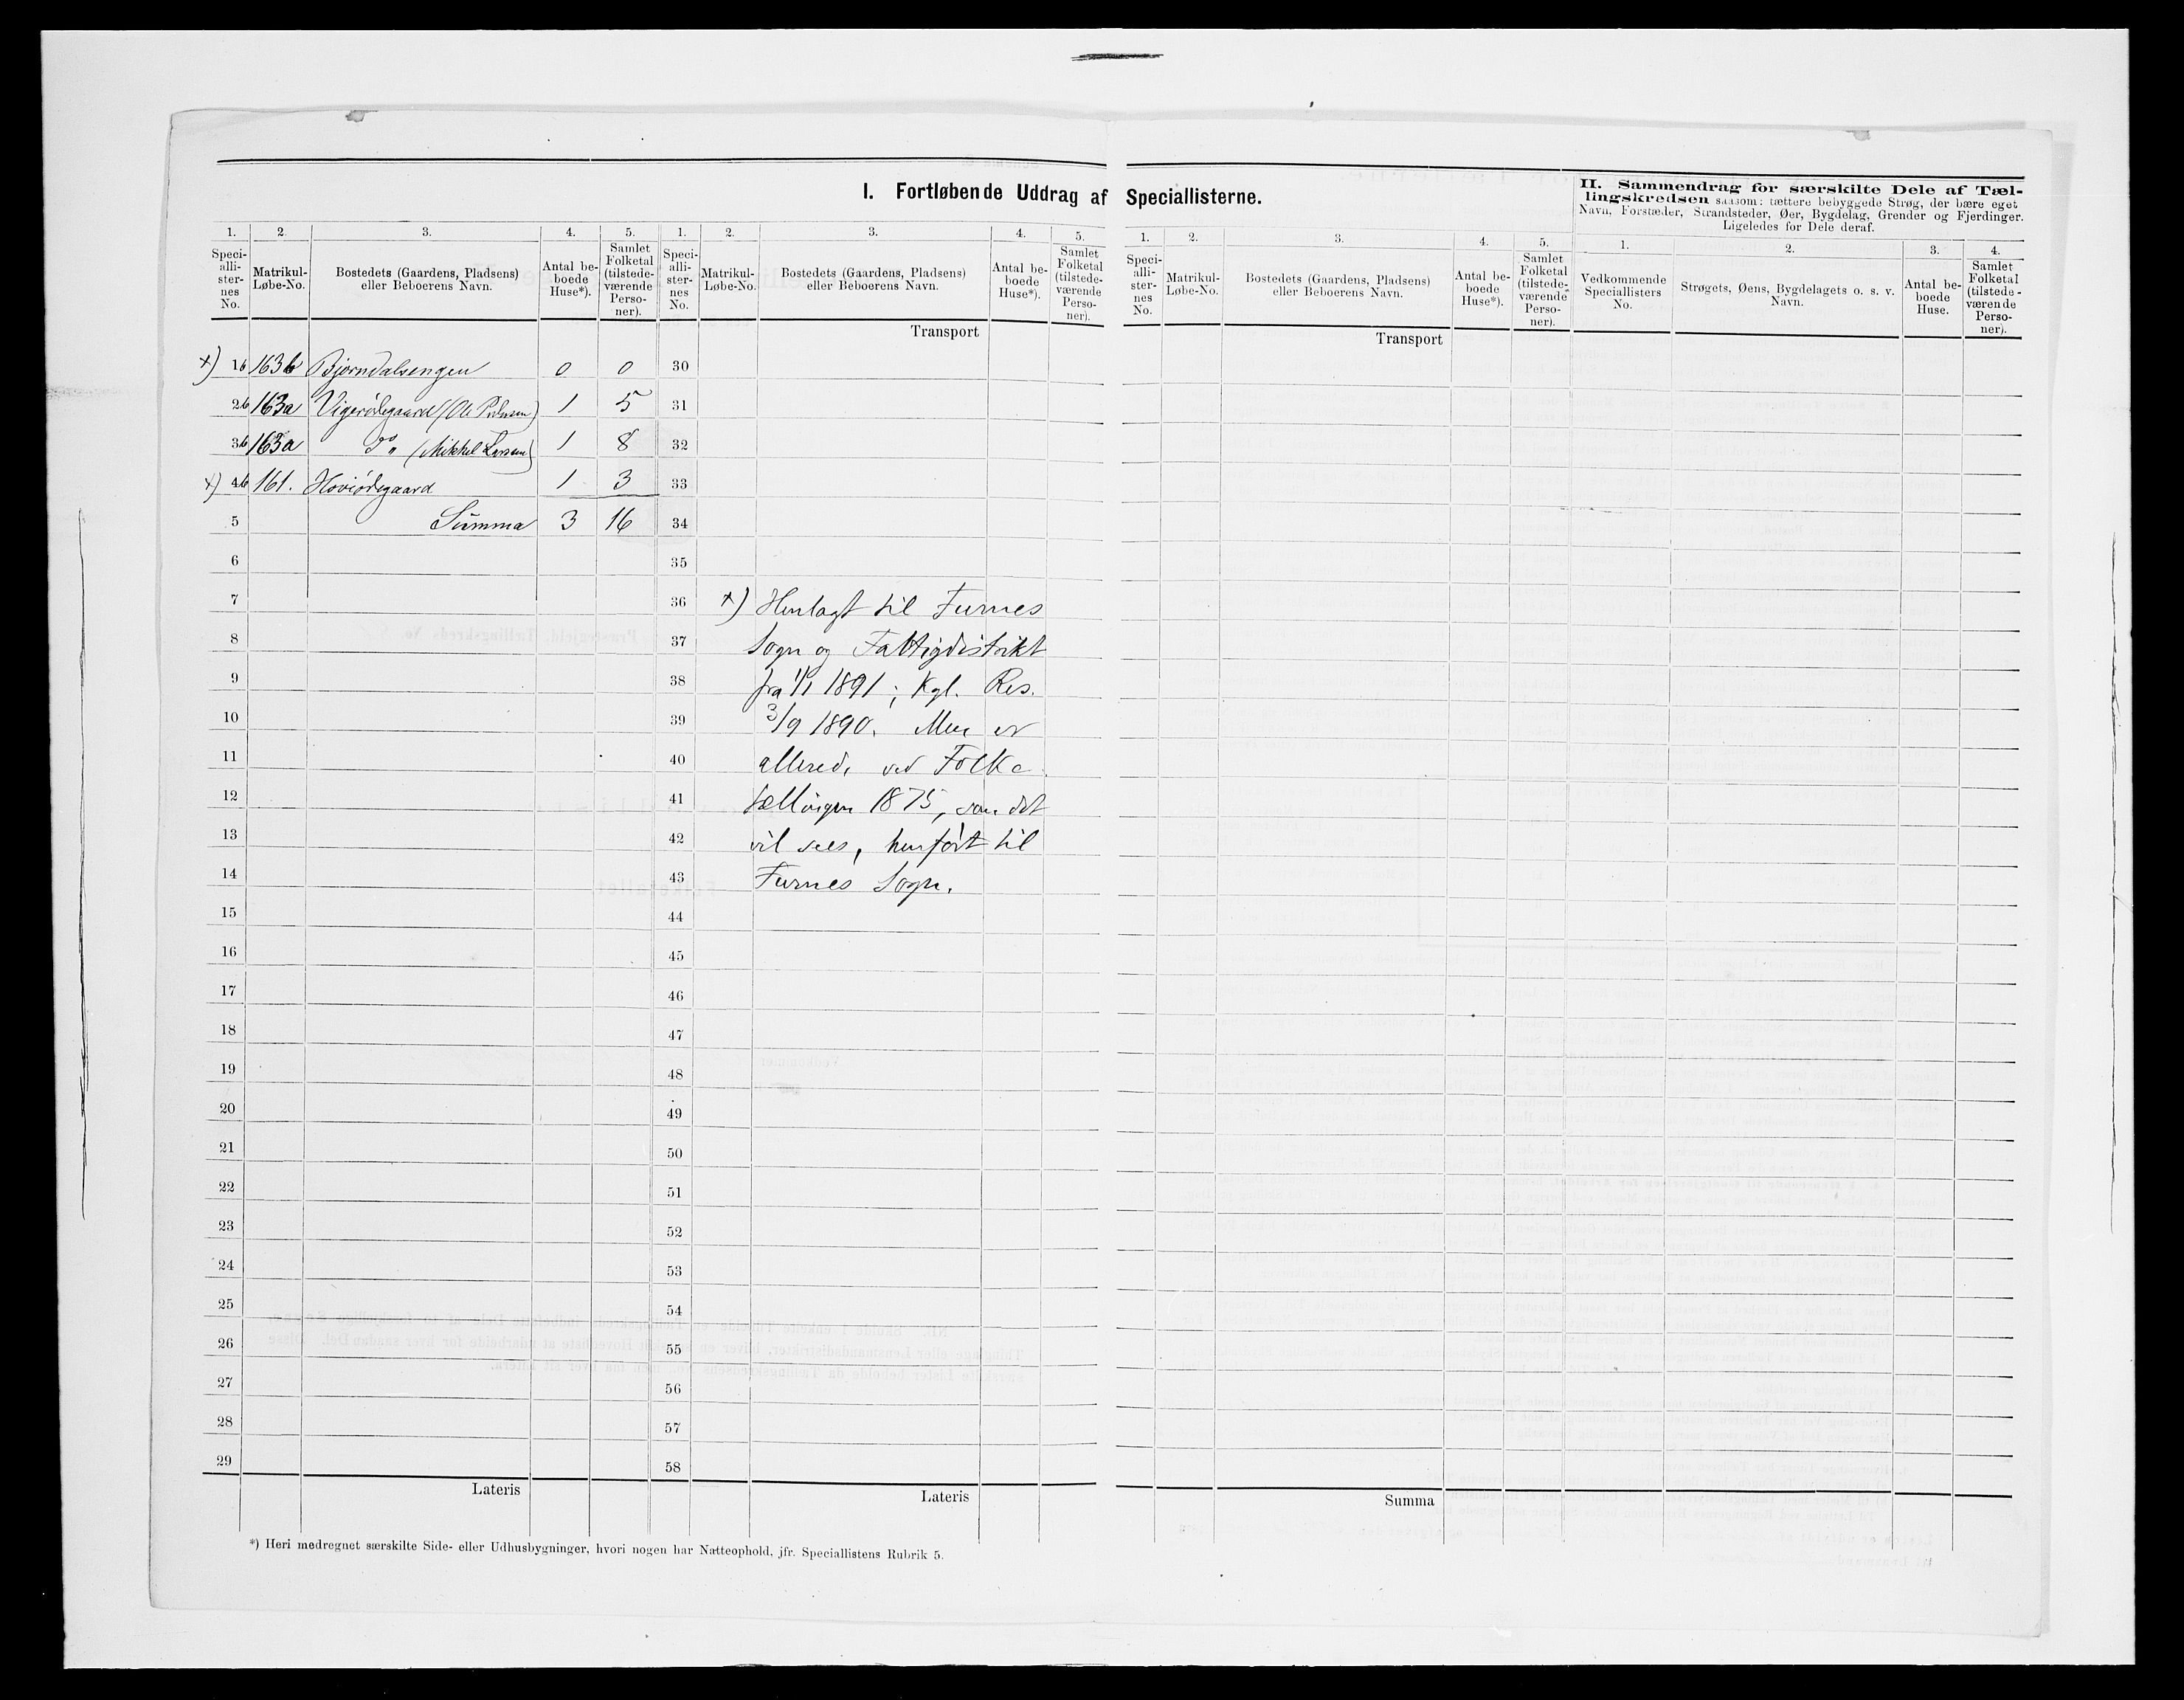 I. Fortløbende Uddrag af Speciallisterne.
II. Sammendrag for særskilte Dele af Tæl-
lingskredsen saasom: tættere bebyggede Strøg, der bære eget
Navn, Forstæder, Strandsteder, Øer, Bygdelag, Grender og Fjerdinger.
Ligeledes for Dele deraf.
1. 2. 3. 4. 5. 1. 2. 3. 4. 5. 1. 2. 3. 4. 5. 1. 2. 3. 4.
Speci-alli-ster-nes No. Matrikul-Løbe-No. Bostedets (Gaardens, Pladsens) eller Beboerens Navn. Antal be-boede Huse*). Samlet Folketal (tilstede-værende Perso-ner).
Speci-alli-ster-nes No. Matrikul-Løbe-No. Bostedets (Gaardens, Pladsens) eller Beboerens Navn. Antal be-boede Huse*). Samlet Folketal (tilstede-værende Perso-ner).
Speci-alli-ster-nes No. Matrikul-Løbe-No. Bostedets (Gaardens, Pladsens) eller Beboerens Navn. Antal be-boede Huse*). Samlet Folketal (tilstede-værende Perso-ner).
Vedkommende Speciallisters No. Strøgets, Øens, Bygdelagets o. s. v. Navn. Antal be-boede Huse. Samlet Folketal (tilstede-værende Perso-ner).
Transport
Transport
×) 1b 163b Bjørndalsengen 0 0
2b 163a Vigerødegaard (Ole Pedersen) 1 5
3b 163a Do (Mikkel Larsen) 1 8
×) 4b 161. Hoviødegaard 1 3
5 Summa 3 16
6
7
8
9
10
11
12
13
14
15
16
17
18
19
20
21
22
23
24
25
26
27
28
29
Lateris
30
31
32
33
34
35
36 ×) Henlagt til Furnes
37 Sogn og Fattigdistrikt
38 fra 1/1 1891; Kgl. Res.
39 3/9 1890. Men er
40 allerede ved Folke
41 tællingen 1875, som det
42 vil sees, henført til
43 Furnes Sogn.
44
45
46
47
48
49
50
51
52
53
54
55
56
57
58
Lateris
Summa
*) Heri medregnet særskilte Side- eller Udhusbygninger, hvori nogen har Natteophold, jfr. Speciallistens Rubrik 5.